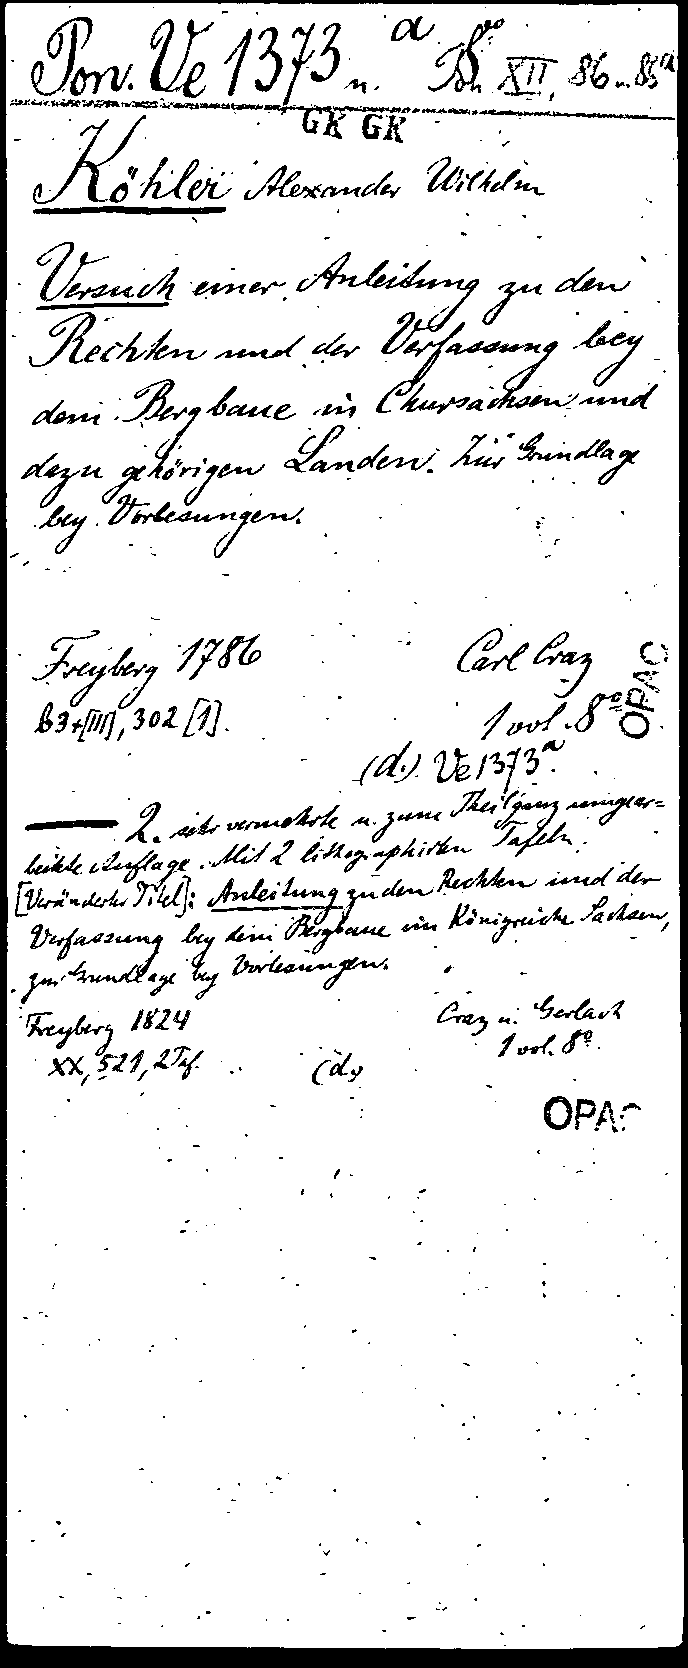 Pon. Ve 1373 u. a 8° XII, 86 u. 85a
GK GK
Köhler Alexander Wilhelm
Versuch einer Anleitung zu den
Rechten und der Verfassung bey
dem Bergbaue in Chursachsen und
dazu gehörigen Landen. Zur Grundlage
bey Vorlesungen.
Freyberg 1786 Carl Craz
63+[III], 302 [1]. 1 vol. 8°
OPAC
(d.) Ve 1373a.
2. sehr vermehrte u. zum Theil ganz umgear=
beitete Auflage. Mit 2 lithographirten Tafeln.
[Veränderter Titel]: Anleitung zu den Rechten und der
Verfassung bey dem Bergbaue im Königreiche Sachsen,
zur Grundlage bey Vorlesungen.
Freyberg 1824 Craz u. Gerlach
XX, 521, 2 Taf. (d.) 1 vol. 8°.
OPAC